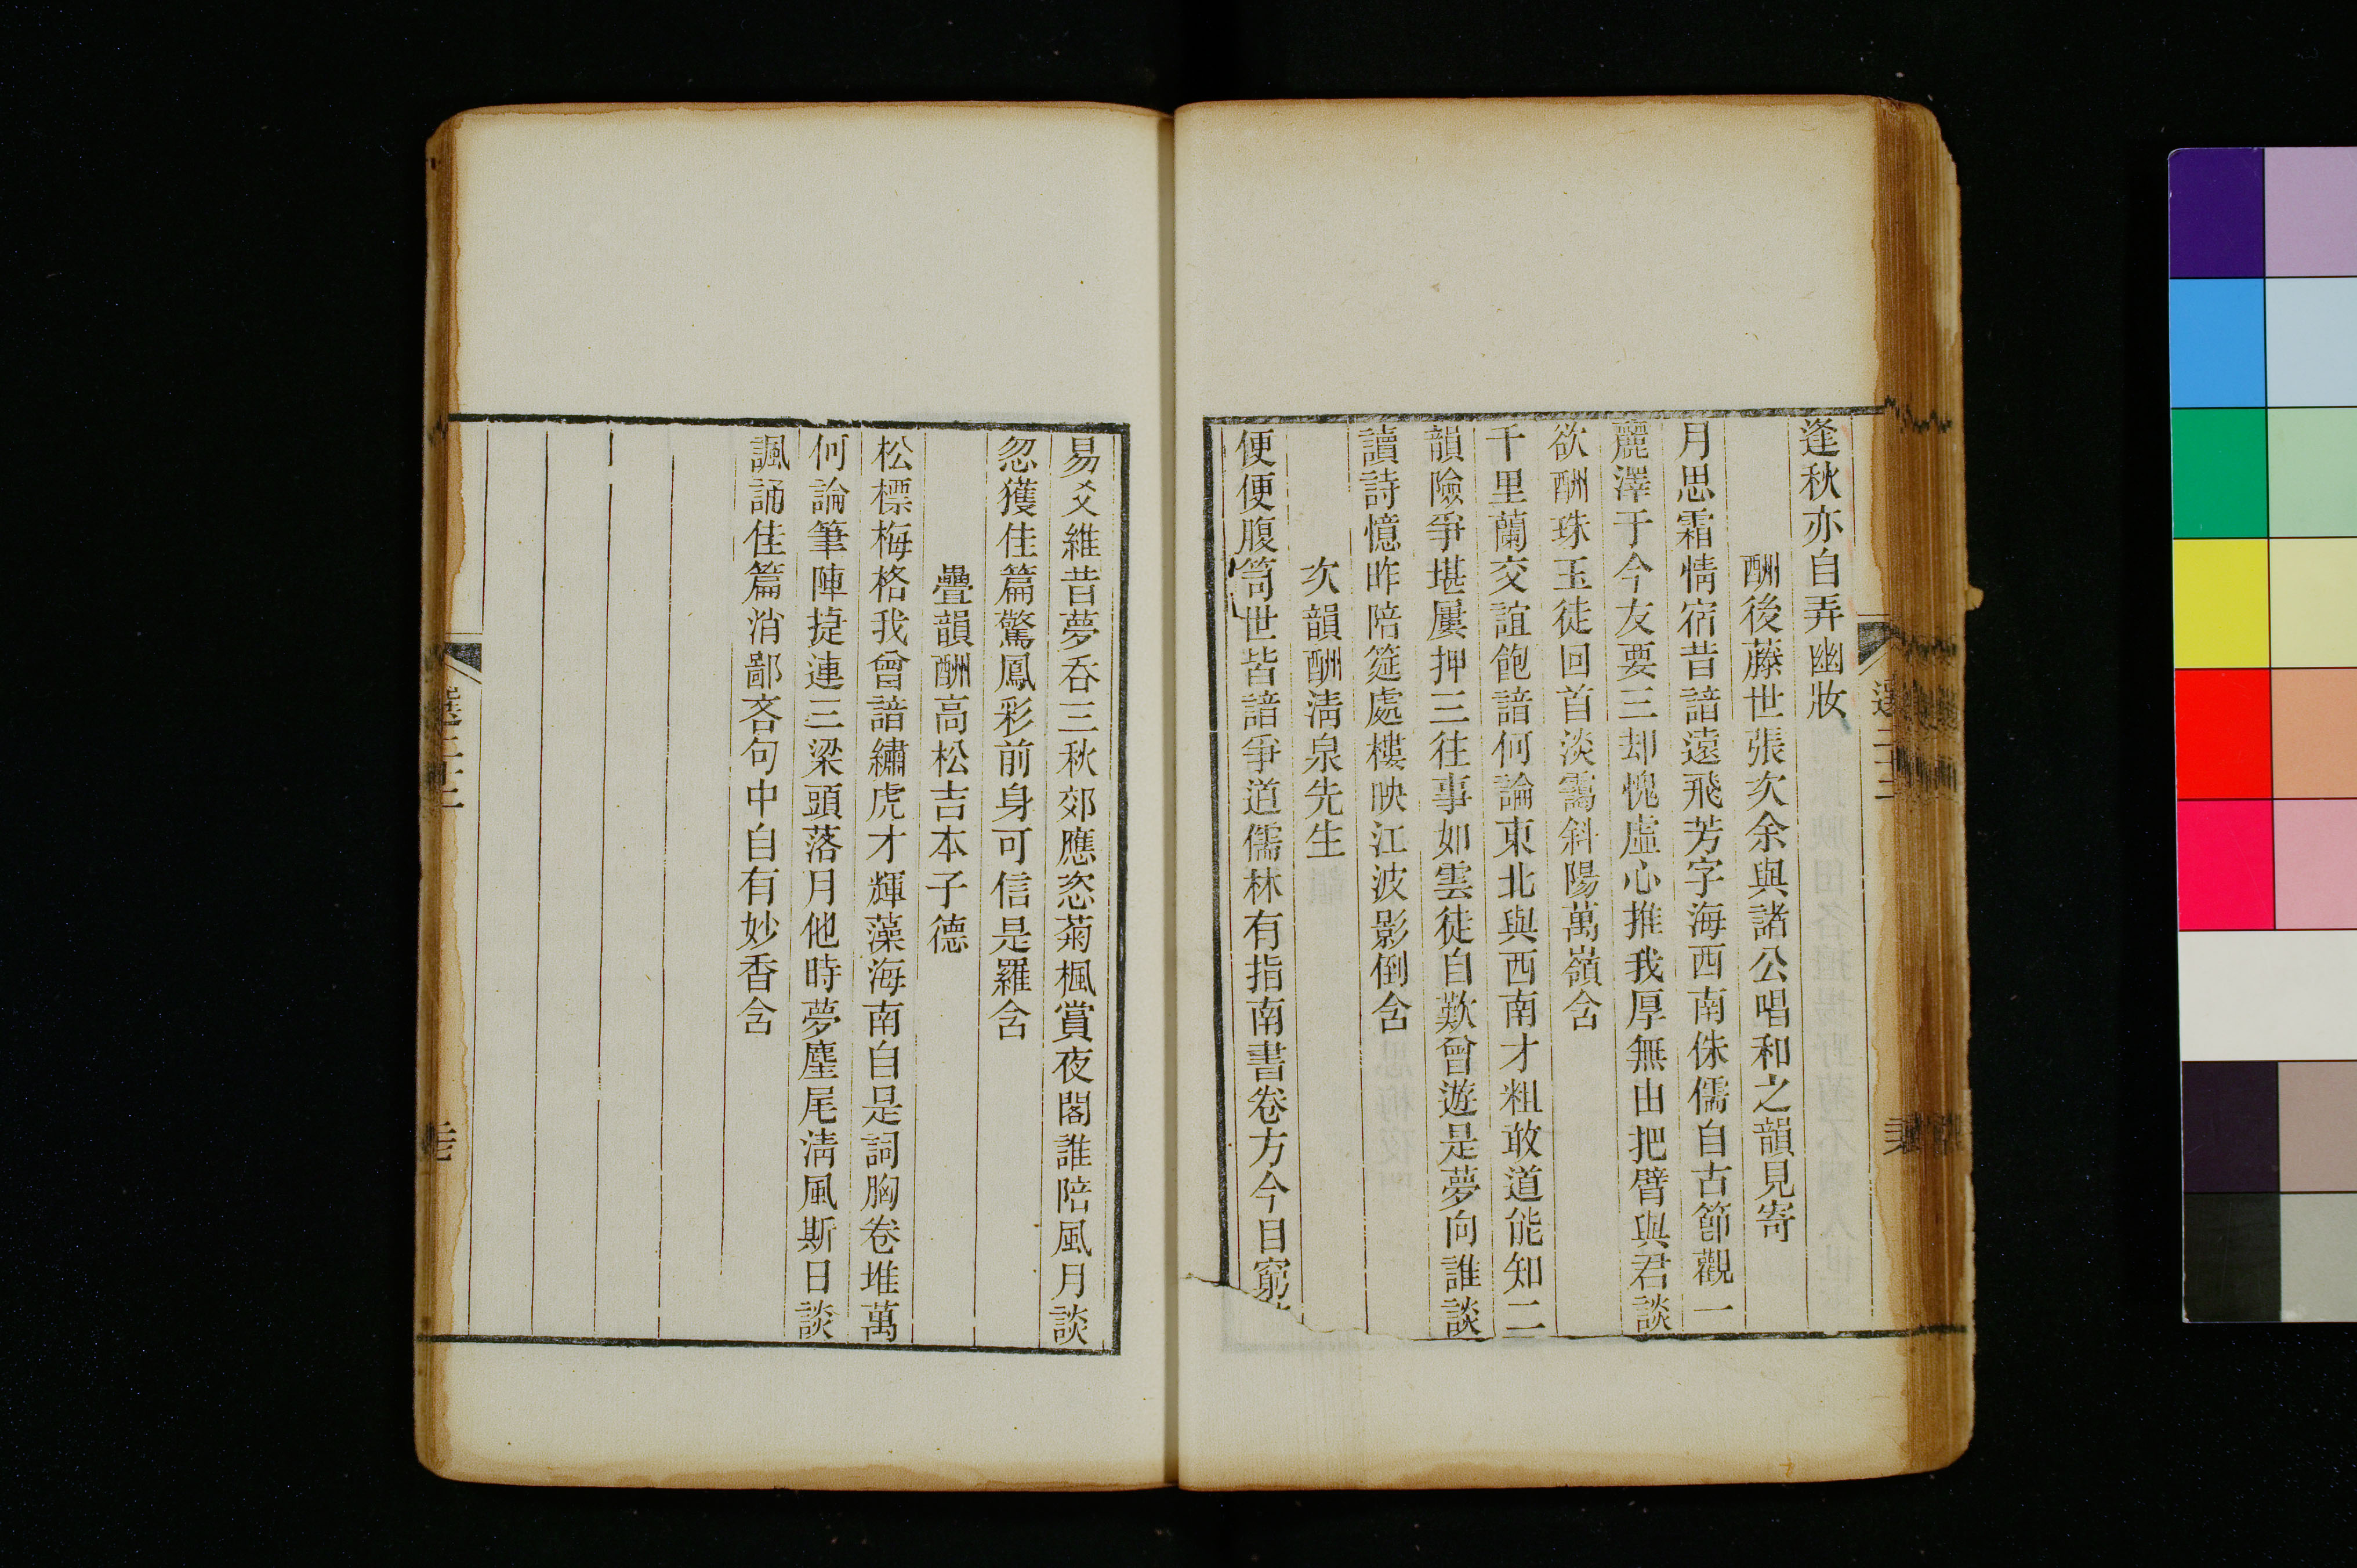 逢秋亦自弄幽妝
酬後藤世張次余與諸公唱和之韻見寄
月思霜情宿昔諳遠飛芳字海西南侏儒自古節觀一
麗澤于今友要三却愧虛心推我厚無由把臂與君談
欲酬珠玉徒回首淡靄斜陽萬嶺含
千里蘭交誼飽諳何論東北與西南才粗敢道能知二
韻險爭堪屢押三往事如雲徒自歎曾遊是夢向誰談
讀詩憶昨陪筵處樓映江波影倒含
次韻酬淸泉先生
便便腹笥世皆諳爭道儒林有指南書卷方今目窮
易爻維昔夢吞三秋郊應恣菊楓賞夜閣誰陪風月談
忽獲佳篇驚鳳彩前身可信是羅含
疊韻酬高松吉本子德
松標梅格我曾諳繡虎才輝藻海南自是詞胸卷堆萬
何論筆陣捷連三梁頭落月他時夢麈尾淸風斯日談
諷誦佳篇消鄙吝句中自有妙香含